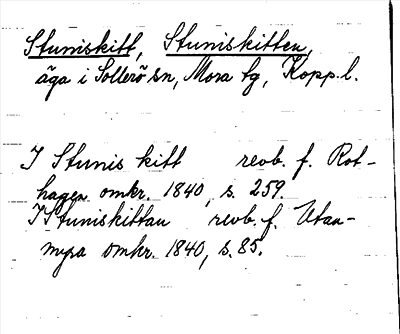 Stuniskitt, Stuniskitten,
äga i Sollerö sn, Mora tg, Kopp.l.
I Stunis kitt revb. f. Rot-
hagen omkr. 1840, s. 259.
I Stuniskittan revb. f. Utan-
myra omkr. 1840, s. 85.